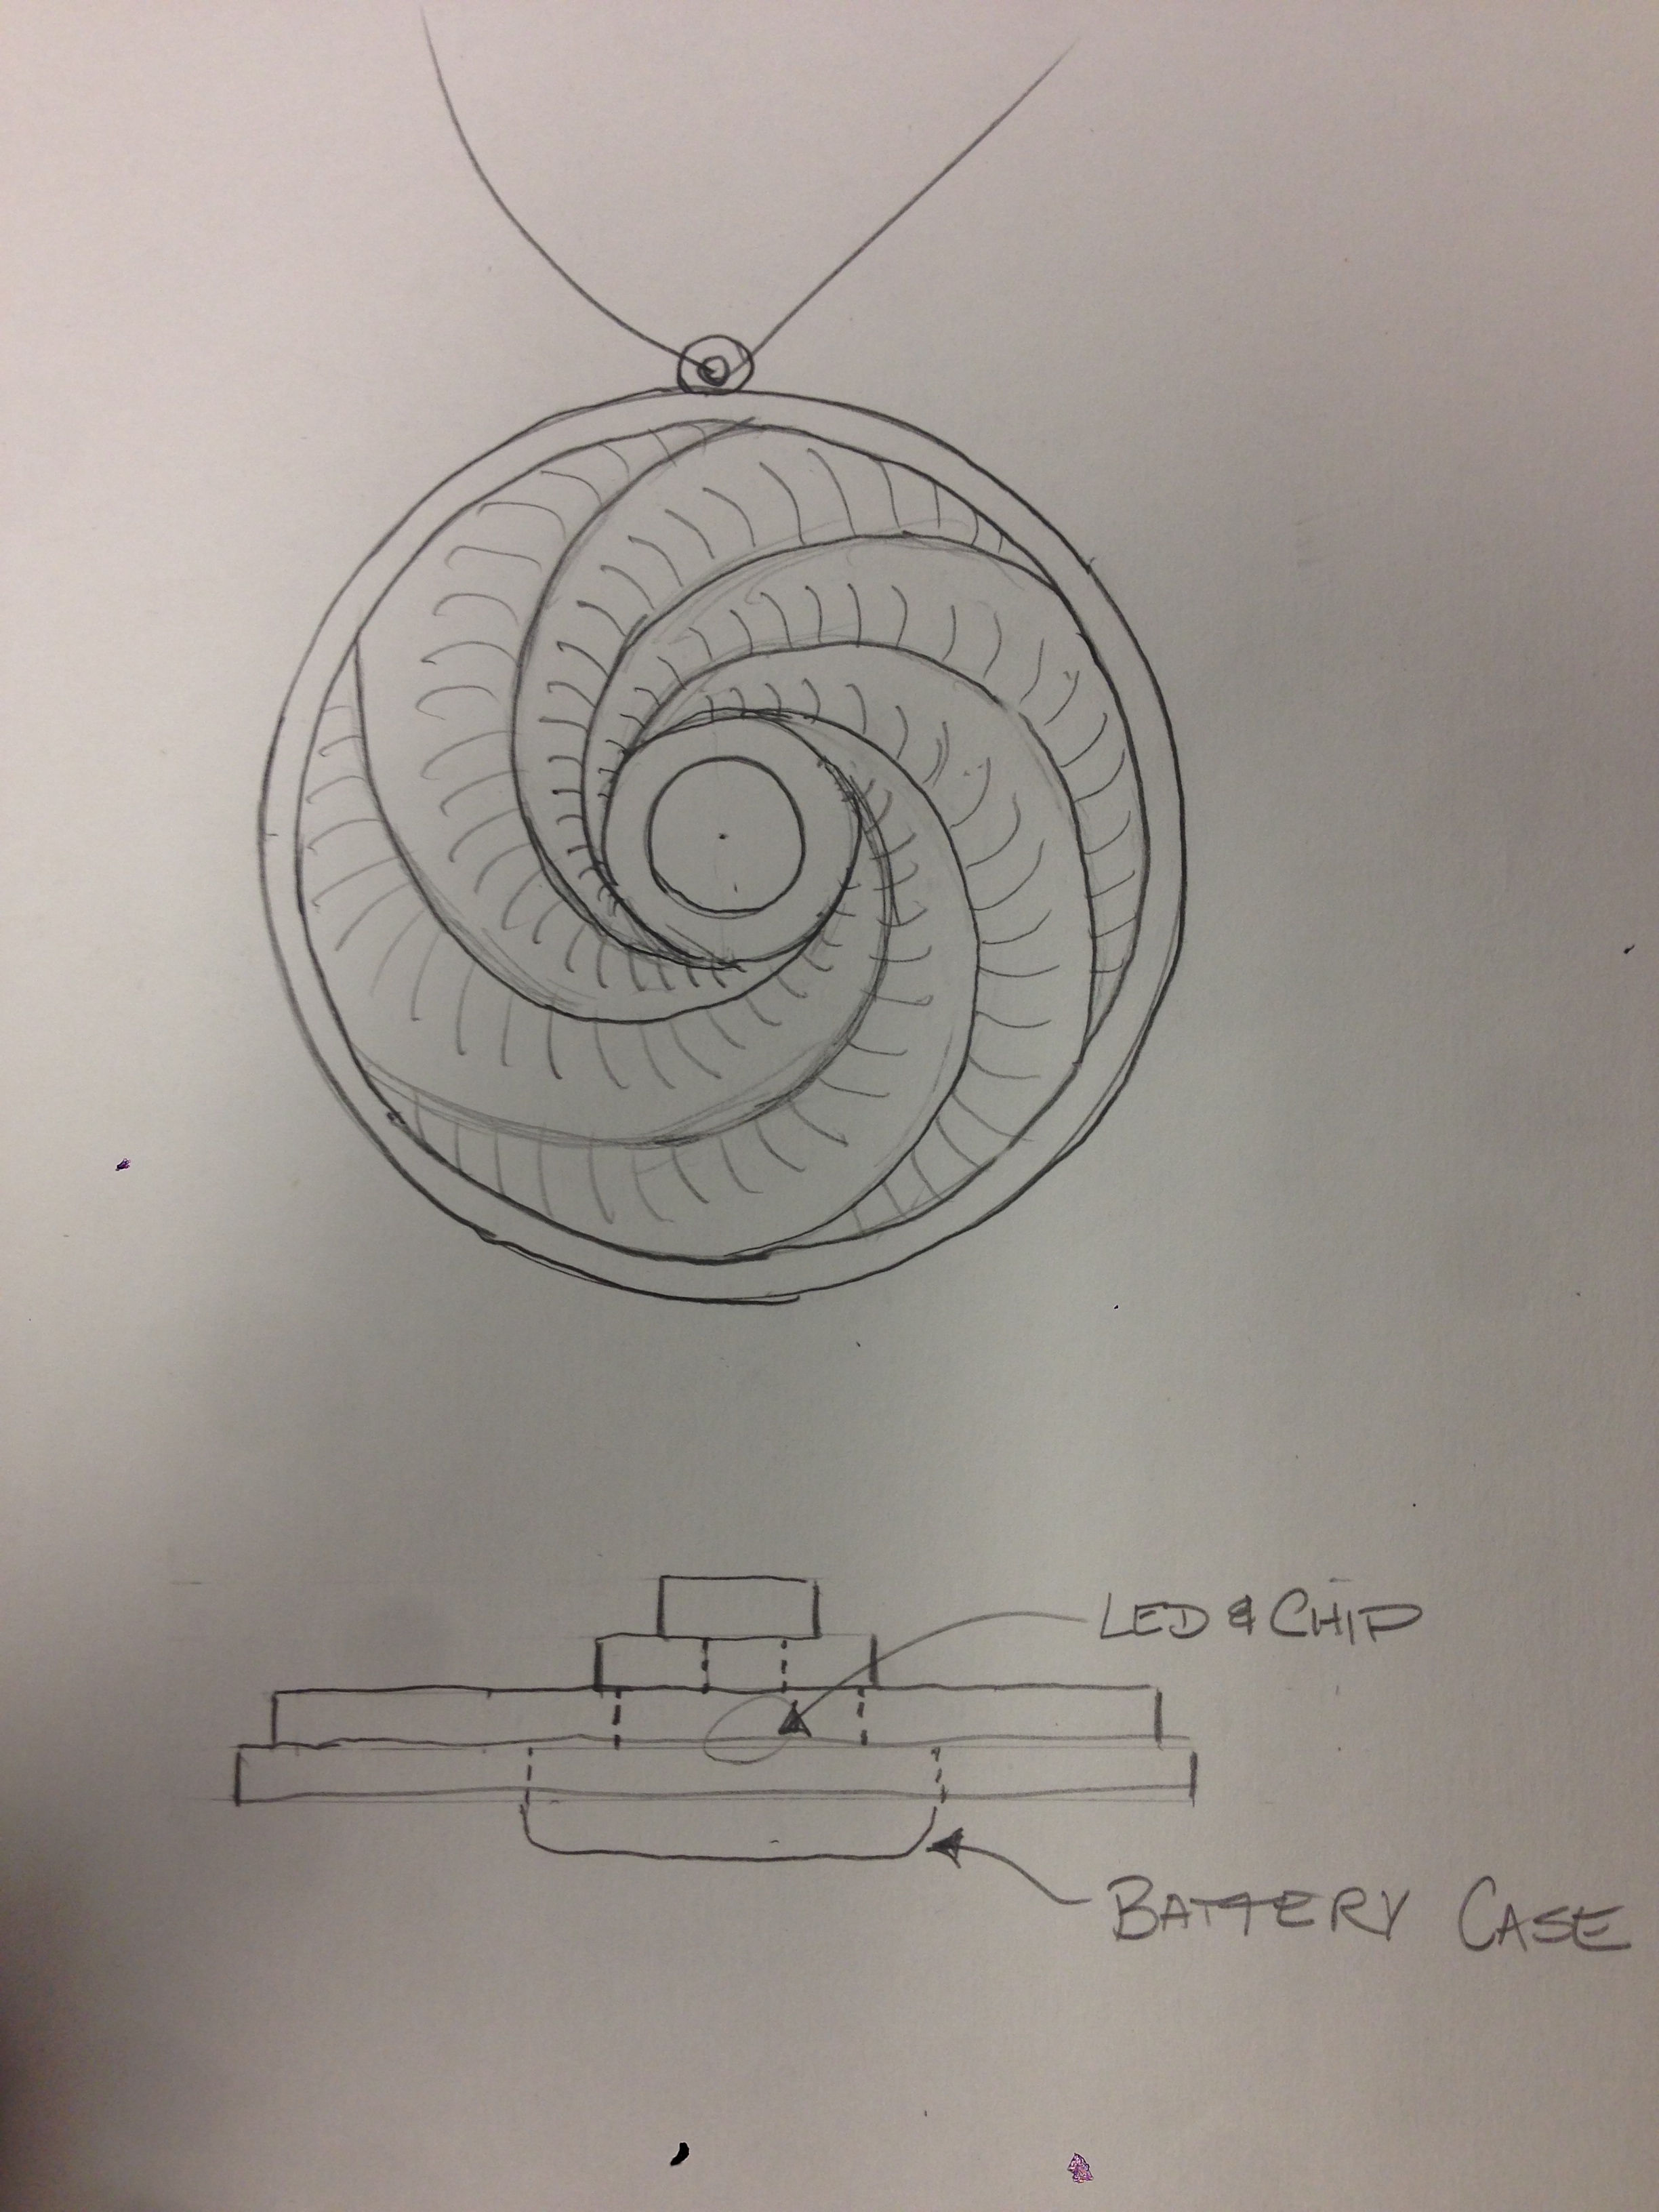 LED & CHIP
BATTERY CASE